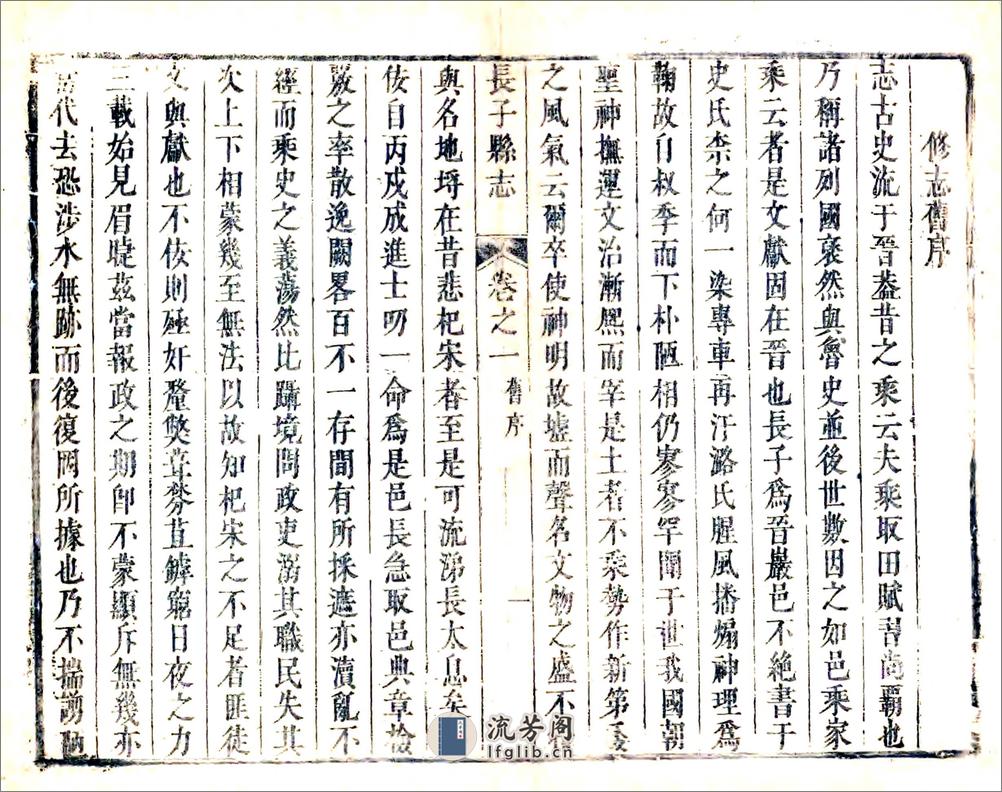 修志舊序
志古史流于晉葢昔之乘云夫乘取田賦
乃稱諸列國褎然與魯史並後世數因之如邑乘家
乘云者是文獻固在晉也長子爲晉巖邑不絶書于
史氏柰之何一染專車再汙潞氏腥風播煽神理爲
故自叔季而下朴陋相仍寥寥罕聞于世我國朝
聖神撫運文治漸熈而宰是土者不乘勢作新第委
之風氣云爾卒使神明故墟而聲名文物之盛不
長子縣志
卷之一
舊序
一
與名地埒在昔悲杞宋者至是可流涕長太息矣
侒自丙戍成進士叨一命爲是邑長急取邑典章檢
覈之率散逸闕畧百不一存間有所採遮亦瀆亂不
經而乘史之義蕩然比躡境問政吏溺其職民失其
次上下相蒙幾至無法以故知杞宋之不足者匪徒
文與獻也不侒則殛奸釐獘日夜之力
三載始見眉睫茲當報政之期卽不蒙顯斥無幾亦
當代去恐涉水無跡而後復罔所據也乃不揣謭陋
流芳阁
lfglib.cn